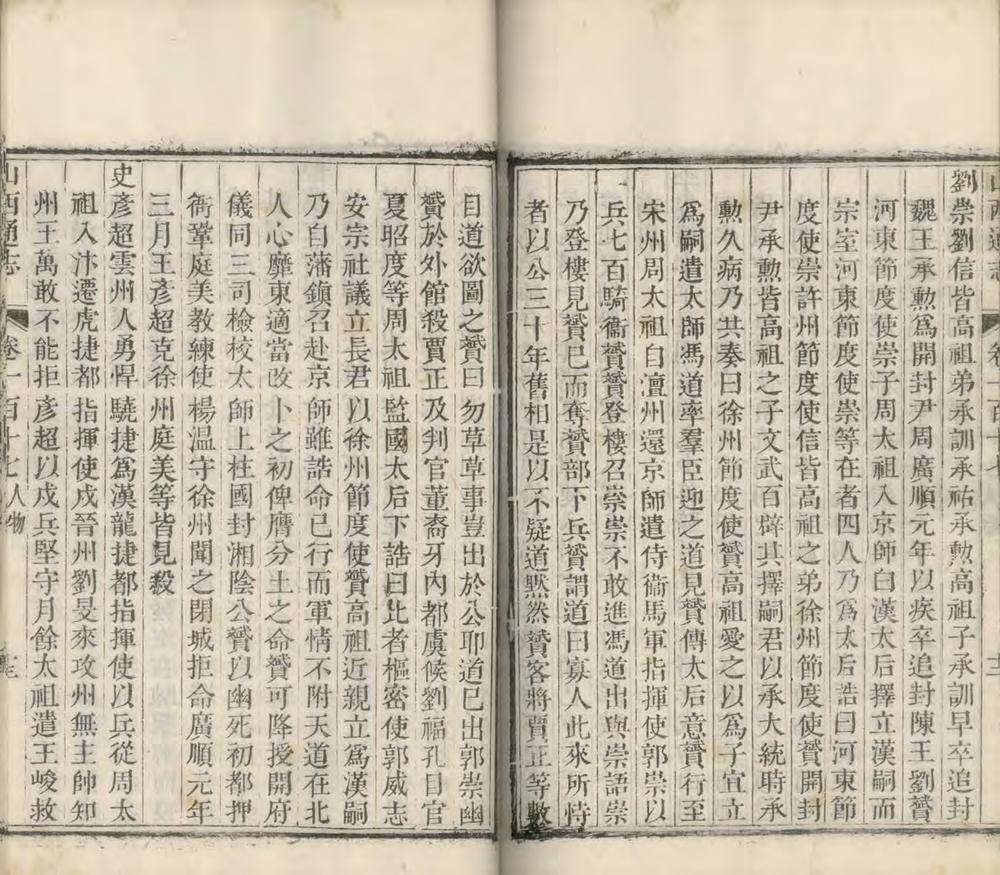 山西通志 卷一百十七 十三
劉崇劉信皆高祖弟承訓承祐承勲高祖子承訓早卒追封
魏王承勲爲開封尹周廣順元年以疾卒追封陳王劉贇
河東節度使崇子周太祖入京師白漢太后擇立漢嗣而
宗室河東節度使崇等在者四人乃爲太后誥曰河東節
度使崇許州節度使信皆高祖之弟徐州節度使贇開封
尹承勲皆高祖之子文武百辟其擇嗣君以承大統時承
勲久病乃共奏曰徐州節度使贇高祖愛之以爲子宜立
爲嗣遣太師馮道率羣臣迎之道見贇傳太后意贇行至
宋州周太祖自澶州還京師遣侍衞馬軍指揮使郭崇以
兵七百騎衞贇贇登樓召崇崇不敢進馮道出與崇語崇
乃登樓見贇已而奪贇部下兵贇謂道曰寡人此來所恃
者以公三十年舊相是以不疑道黙然贇客將賈正等數
目道欲圖之贇曰勿草草事豈出於公耶道已出郭崇幽
贇於外館殺賈正及判官董裔牙內都虞候劉福孔目官
夏昭度等周太祖監國太后下誥曰比者樞密使郭威志
安宗社議立長君以徐州節度使贇高祖近親立爲漢嗣
乃自藩鎭召赴京師雖誥命已行而軍情不附天道在北
人心靡東適當改卜之初俾膺分土之命贇可降授開府
儀同三司檢校太師上柱國封湘陰公贇以幽死初都押
衙鞏庭美教練使楊温守徐州聞之閉城拒命廣順元年
三月王彥超克徐州庭美等皆見殺
史彥超雲州人勇悍驍捷爲漢龍捷都指揮使以兵從周太
祖入汴遷虎捷都指揮使戍晉州劉旻來攻州無主帥知
州王萬敢不能拒彥超以戍兵堅守月餘太祖遣王峻救
山西通志 卷一百十七 人物